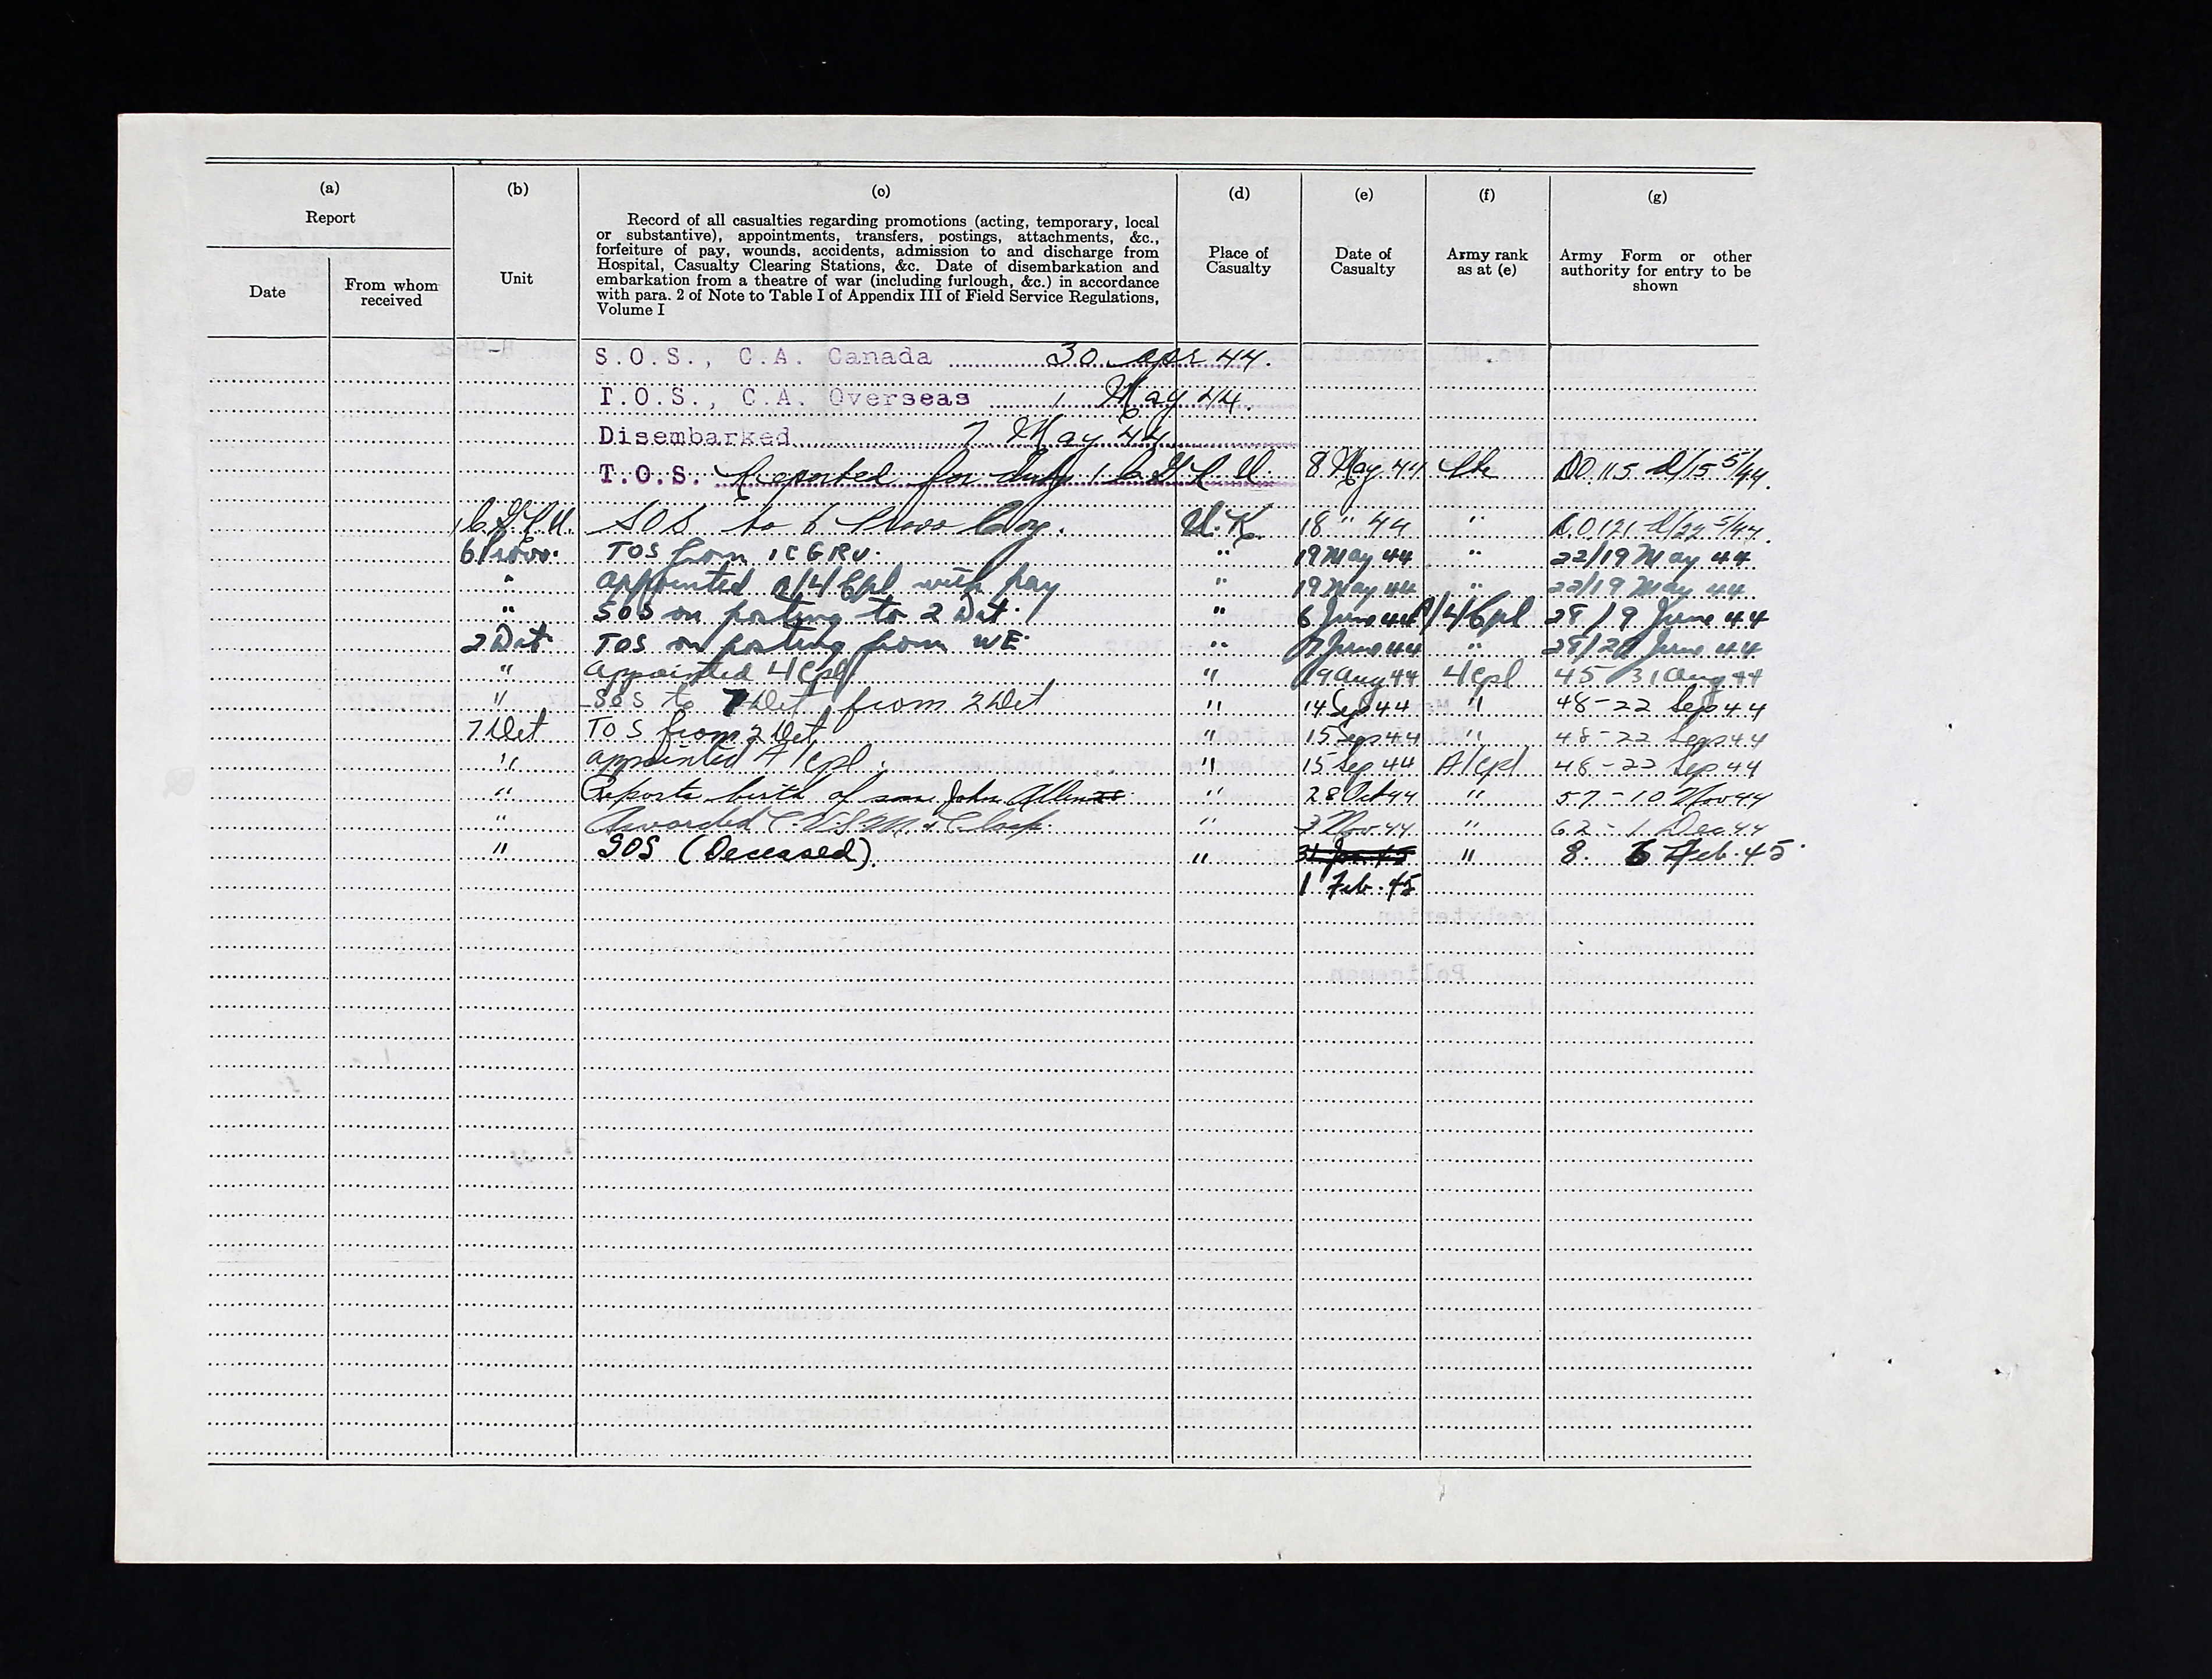 (a) (b) (c) (d) (e) (f) (g)
Report
Date
From whom received
Unit
Record of all casualties regarding promotions (acting, temporary, local
or substantive), appointments, transfers, postings, attachments, &c.,
forfeiture of pay, wounds, accidents, admission to and discharge from
Hospital, Casualty Clearing Stations, &c. Date of disembarkation and
embarkation from a theatre of war (including furlough, &c.) in accordance
with para. 2 of Note to Table I of Appendix III of Field Service Regulations,
Volume I
Place of Casualty
Date of Casualty
Army rank as at (e)
Army Form or other
authority for entry to be
shown
S.O.S., C.A. Canada 30 apr 44.
T.O.S., C.A. Overseas 1 May 44.
Disembarked 7 May 44
T.O.S. Reported for duty 1 C G R U 8 May 44 DO 115 d/15 5/44.
1 C G R U. SOS to 6 Provo Coy. U.K. 18 " 44 " D.O 121 d/22 5/44.
6 Provo. TOS from 1 C G R U. " 19 May 44 " 22/19 May 44
" appointed a/L/Cpl with pay " 19 May 44 " 22/19 May 44
" SOS on posting to 2 Det. " 6 June 44 A/L/Cpl 28/9 June 44
2 Det TOS on posting from WE. " 7 June 44 " June 44
" appointed L/Cpl " 19 Aug 44 L/Cpl 45 31 Aug 44
" SOS to 7 Det from 2 Det " 14 Sep 44 " 48-22 Sep 44
7 Det TOS from 2 Det " 15 Sep 44 " 48-22 Sep 44
" appointed A/Cpl. " 15 Sep 44 A/Cpl 48-22 Sep 44
" Reports birth of son John Allan " 28 Oct 44 " 57-10 Nov 44
" Awarded C.V.S.M. & Clasp. " 3 Nov 44 " 62-1 Dec 44
" SOS (Deceased). " 31 Jan 45 " 8. 6 Feb. 45.
1 Feb. 45